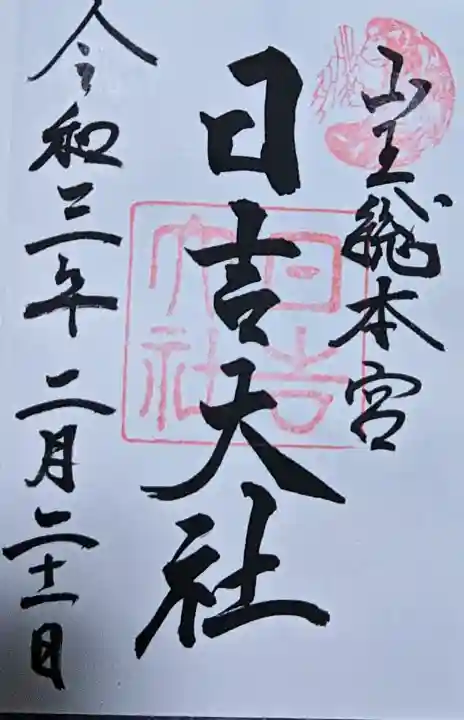 山王総本宮
日吉大社
日吉
大社
令和三年二月二十一日